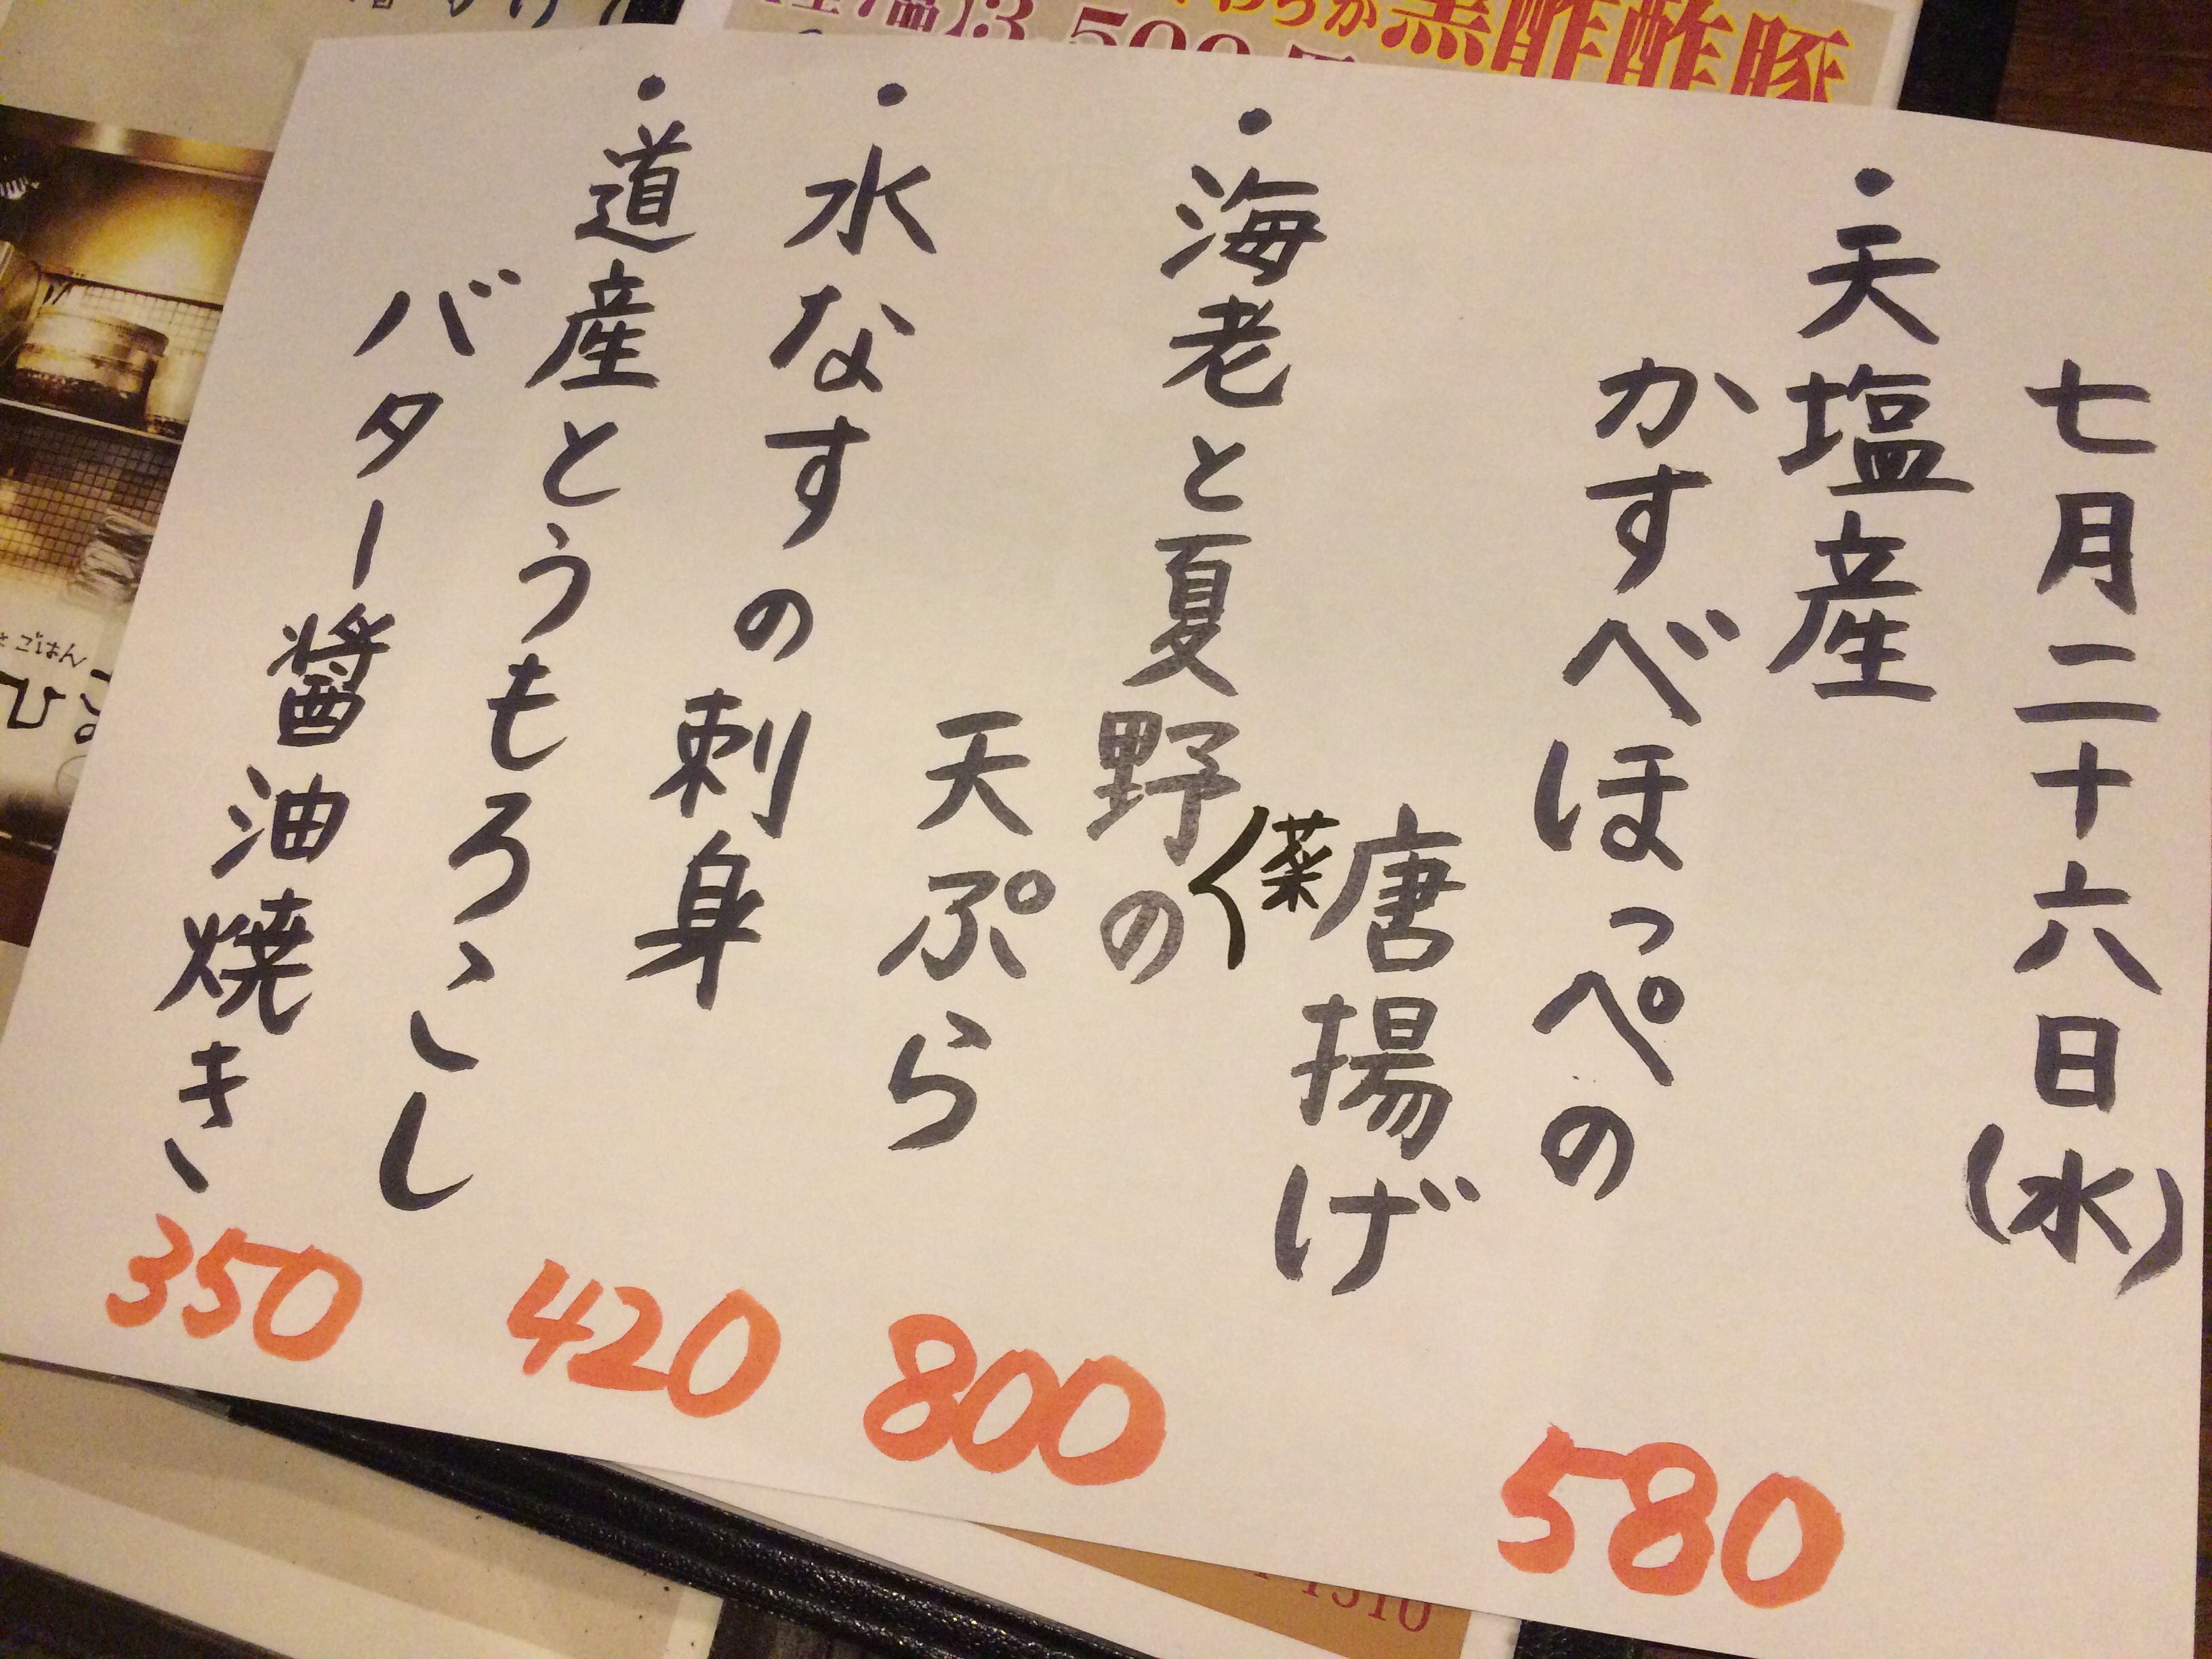 七月二十六日(水)
・天塩産
かすべほっぺの
唐揚げ
580
・海老と夏野菜の
天ぷら
800
・水なすの刺身
420
・道産とうもろこし
バター醤油焼き
350
黒酢酢豚
3,500
ごはん